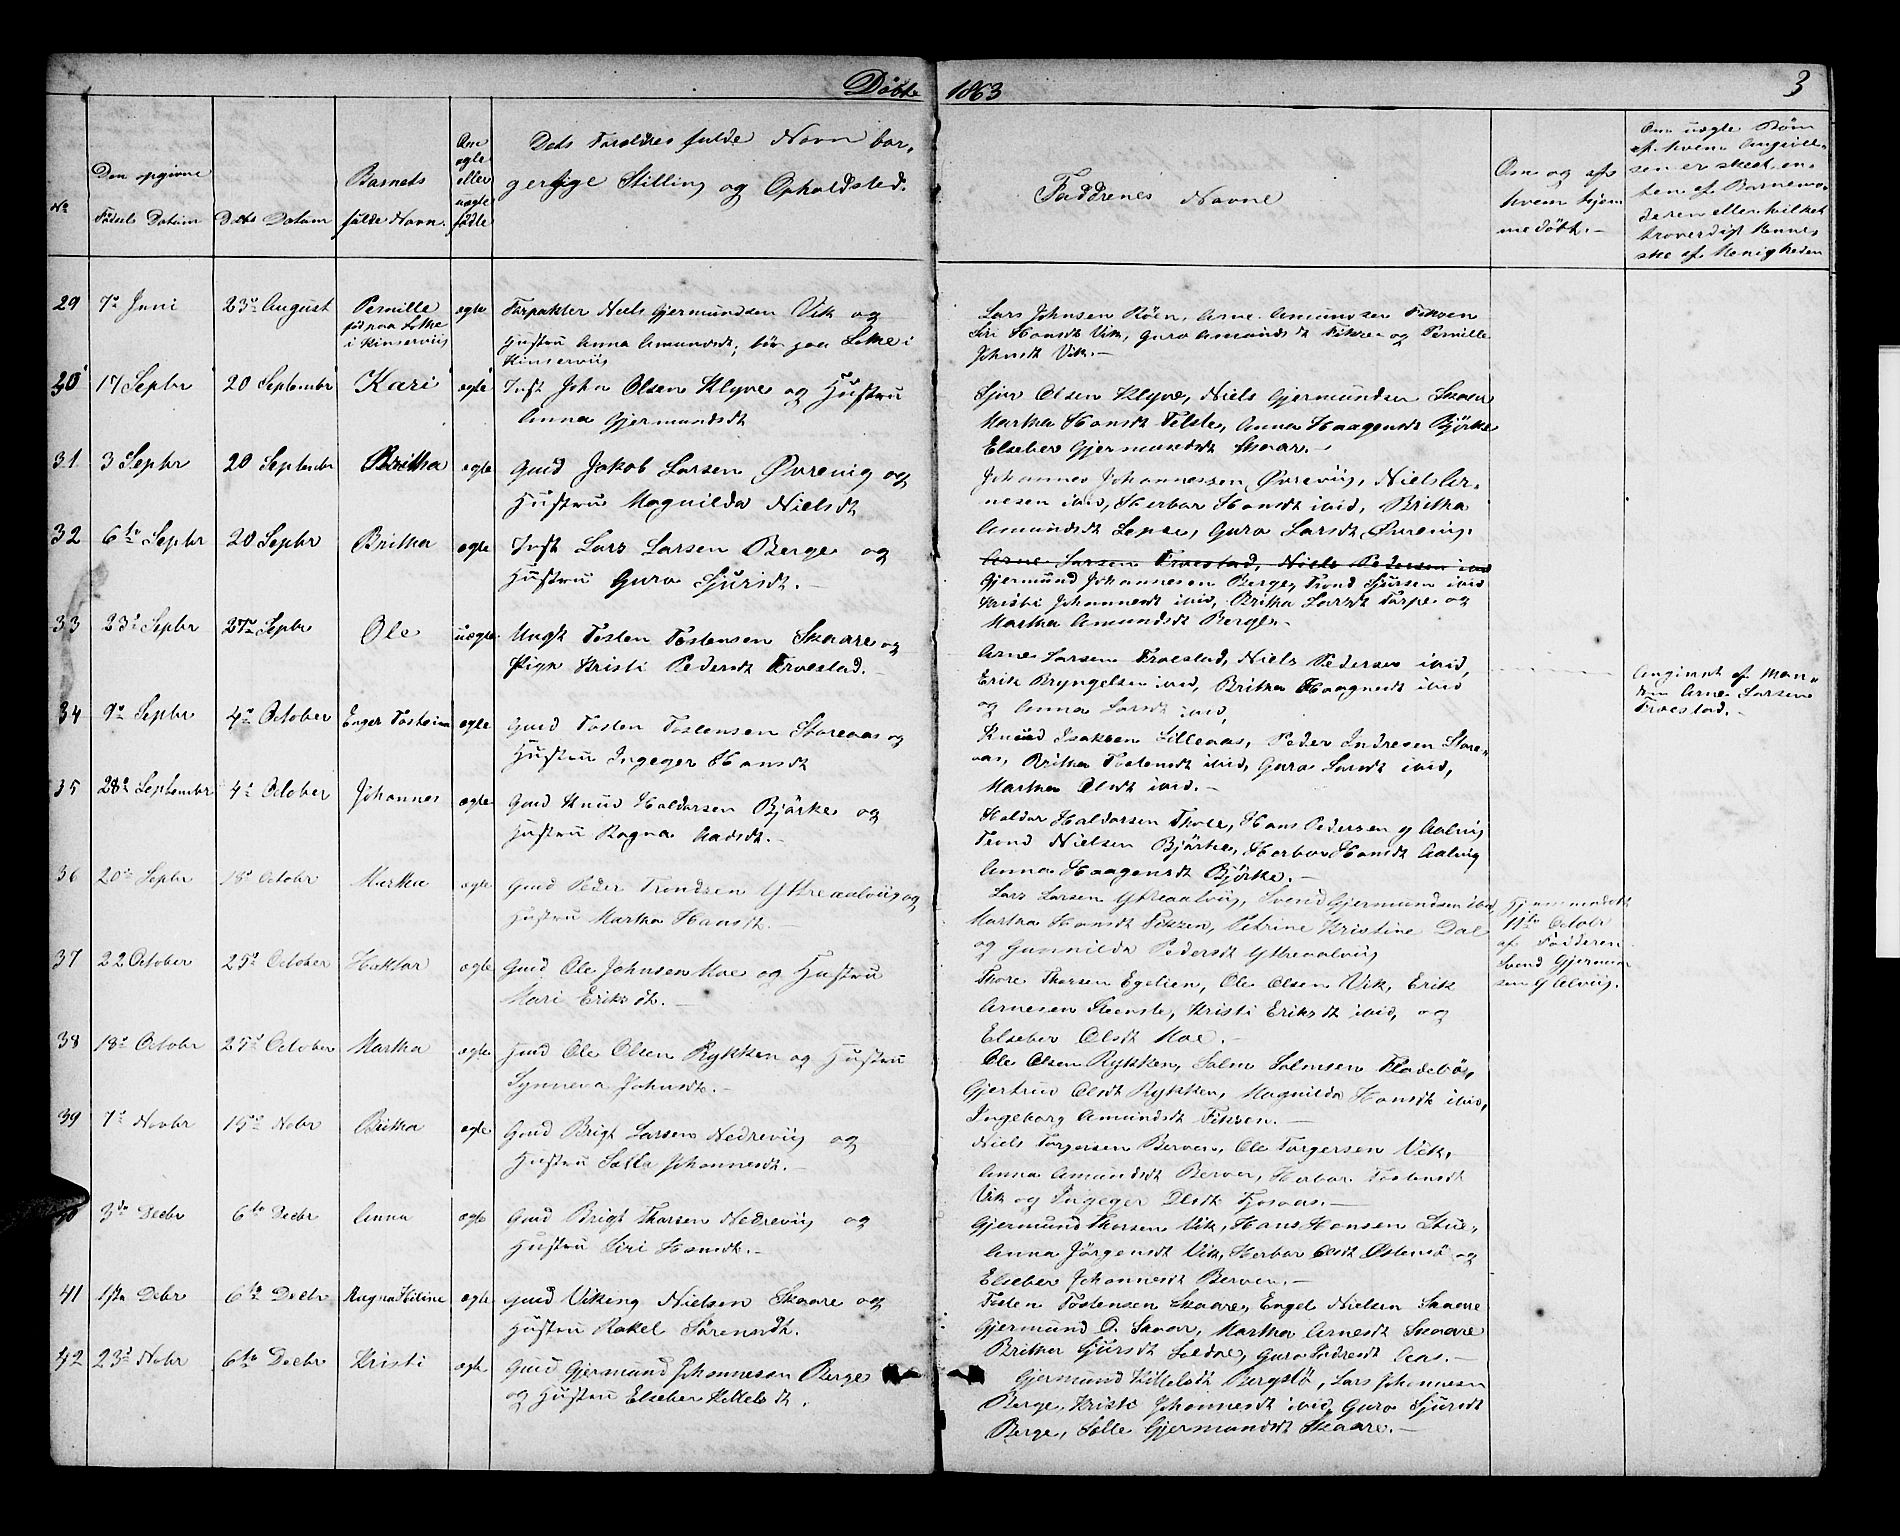 Döbte 1863 3
No
Den opgivne
Födsels Datum
Daabs Datum
Barnets
fulde Navn.
Om
ægte
eller
uægte
födte
Dets Foraldres fulde Navn bor-
gerlige Stilling og Opholdsted.
Faddrenes Navne
Om og af
hvem hjem
medöbt.-
Om uægte Börn
af hvem Angivel-
sen er skeet, en-
ten af Barnemo-
deren eller hvilket
troverdigt Menne-
ske af Menigheden
29 7de Juni 23de August Pernille ægte Forpakter Niels Gjermundsen Vik og
i Kinserviig
Hustru Anna Amundsdt;
Kinserviig
Lars Johnsen Röen, Arne Amundsen Fixsen
Siri Hansdt Vik, Guro Amundsdt Fixsen og Pernille
Johnsdt Vik.-
30 17 Sepbr 20 Septembr Kari ægte Inst John Olsen Klyve og Hustru
Anna Gjermundsdt
Sjur Olsen Klyve, Niels Gjermundsen Skaar
Martha Hansdt Tolste, Anna Haagensdt Björke
Elseber Gjermundsdt Skaar.-
31 3 Sepbr 20 Septembr Britha ægte Gmd Jakob Larsen Övrevig og
Hustru Magnilda Nielsdt
Johannes Johannessen Övreviig, Niels Ar-
nesen ibid, Herbor Hansdt ibid, Britha
Amundsdt Lepse, Guro Larsdt Övrevig.
32 6te Sepbr 20 Sepbr Britha ægte Inst Lars Larsen Berge og
Hustru Guro Sjursdt.-
Arne Larsen Troestad, Niels Pedersen ibid
Gjermund Johannesen Berge, Trond Sjursen ibid
Kristi Johannesdt ibid, Britha Larsdt Torpe og
Martha Amundsdt Berge.-
33 23de Sepbr 27de Sepbr Ole uægte Ungk Tosten Tostensen Skaare og
Pige Kristi Pedersdt Troestad.-
Arne Larsen Troestad, Niels Pedersen ibid,
Erik Bryngelsen ibid, Britha Haagnsdt ibid
og Anna Larsdt ibid,
Angivet af Man-
den Arne Larsen
Troestad.-
34 9de Sepbr 4de October Enger Tosteina ægte Gmd Tosten Tostensen Storeaas og
Hustru Ingeger Hansdt
Knud Isaksen Lilleaas, Peder Indresen Store-
aas, Britha Tostensdt ibid, Guro Larsdt ibid,
Martha Olsdt ibid.-
35 28de Septembr 4de October Johannes ægte Gmd Knud Haldorsen Björke og
Hustru Ragna Aadsdt.-
Haldor Haldorsen Thoe, Hans Pedersen y Aalviig
Trond Nielsen Björke, Herbor Hansdt Aalvig
Anna Haagensdt Björke.-
36 20de Sepbr 18de Octobr Martha ægte Gmd Peder Trondsen Ytreaalviig og
Hustru Martha Hansdt.-
Lars Larsen Ytreaalviig, Svend Gjermundsen ibid,
Martha Hansdt Fixsen, Petrine Kristine Dal
og Gunnilda Pedersdt Ytreaalviig
Hjemmedöbt
11te Octobr
af Fadderen
Svend Gjermun
sen Y Alviig.
37 22 October 25de October Haktor ægte Gmd Ole Johnsen Moe og Hustru
Mari Eriksdt.-
Thore Thorsen Egelien, Ole Olsen Vik, Erik
Arnesen Steenste, Kristi Eriksdt ibid, og
Elseber Olsdt Moe.-
38 18de Octobr 25de October Martha ægte Gmd Ole Olsen Rykken og Hustru
Synneva Johnsdt.-
Ole Olsen Rykken, Salm Salmsen Fladebö,
Gjertrud Olsdt Rykken, Magnilda Hansdt ibid,
Ingeborg Amundsdt Fixsen.-
39 7de Novbr 15de Nobr Britha ægte Gmd Brigt Larsen Nedreviig og
Hustru Salla Johannesdt.-
Niels Torgersen Berven, Ole Torgersen Vik,
Anna Amundsdt Berven, Herbor Tostensdt
Vik og Ingeger Olsdt Fosaas.-
40 3de Decbr 6te Decbr Anna ægte Gmd Brigt Thorsen Nedreviig og
Hustru Siri Hansdt.-
Gjermund Thorsen Vik, Hans Hansen Stue,
Anna Jörgensdt Vik, Herbor Olsdt Östensö og
Elseber Johannesdt Berven.-
41 1ste Decbr 6te Decbr Ragna Heline ægte Gmd Viking Nielsen Skaare og
Hustru Rakel Sörensdt.
Tosten Tostensen Skaare, Engel Nielsen Skaare
Gjermund O. Skaar, Martha Arnesdt Skaare
Britha Sjursdt Soldal, Guro Indresdt Aas.-
42 23de Nobr 6te Decbr Kristi ægte Gmd Gjermund Johannesen Berge
og Hustru Elseber Kittelsdt.
Gjermund Kittelsdt Bergstö, Lars Johannesen
Berge, Kristi Johannesdt ibid, Guro Sjursdt
Berge, Salle Gjermundsdt Skaare.-